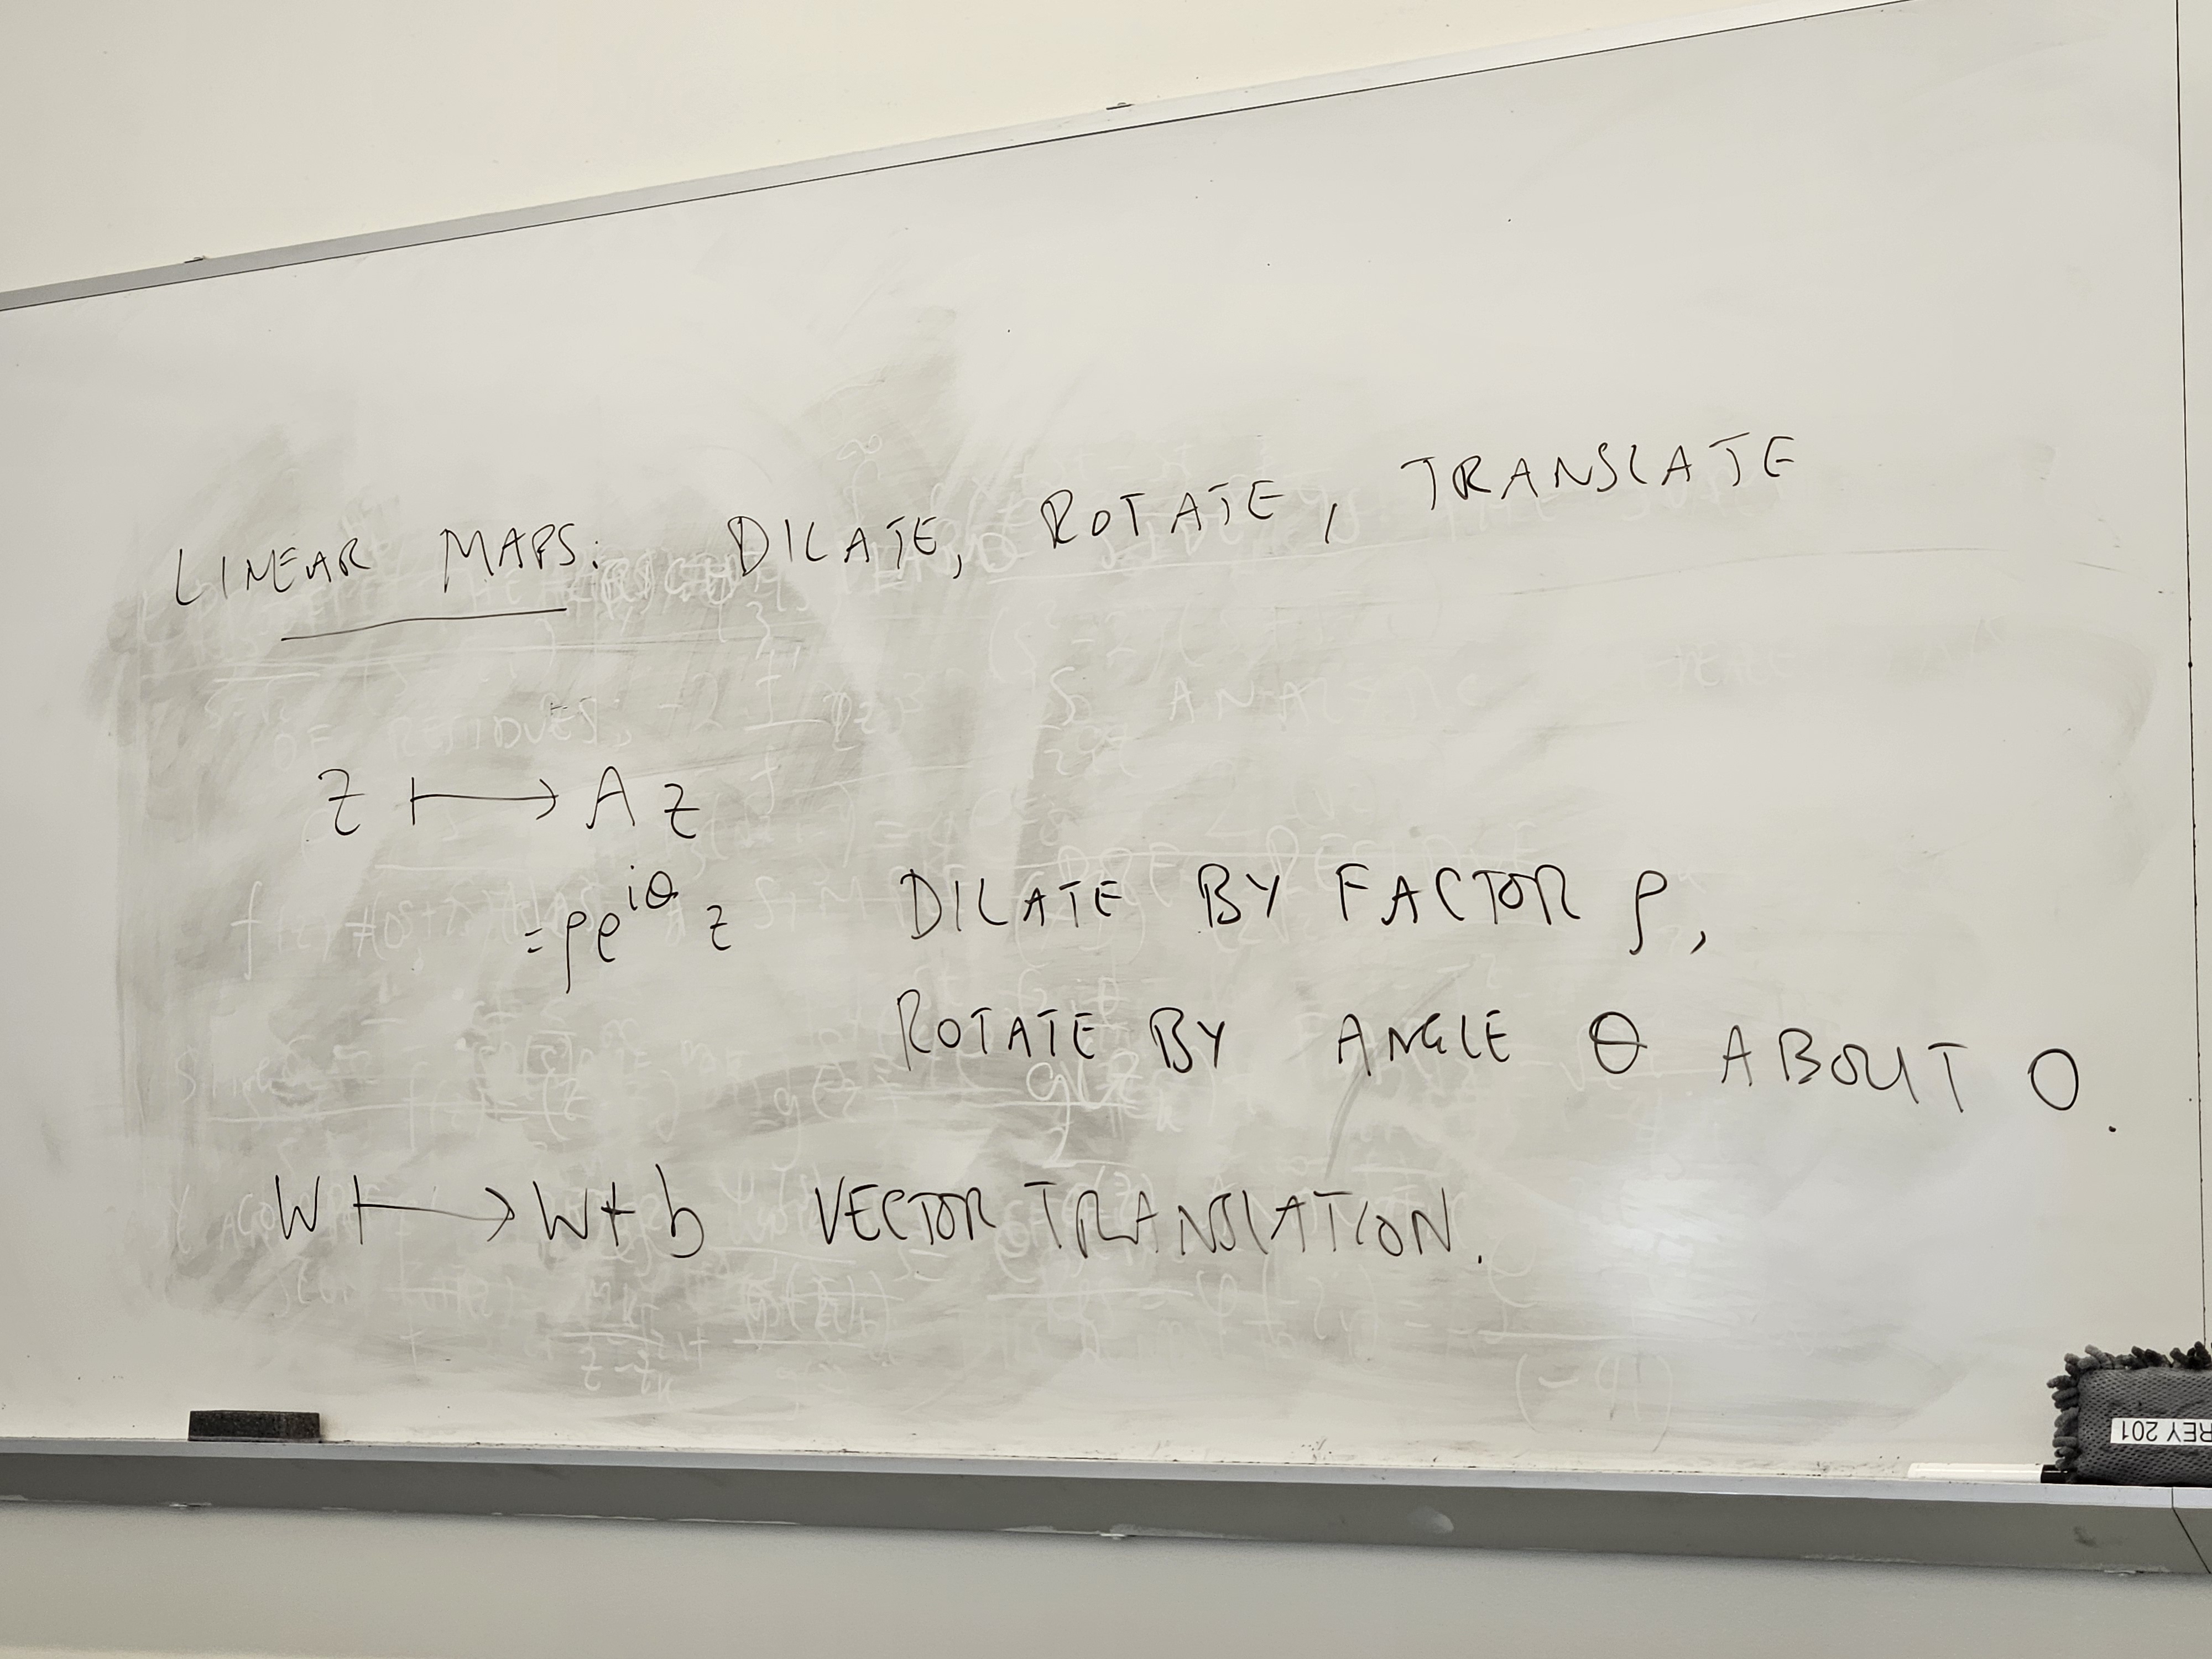 LINEAR MAPS: DILATE, ROTATE, TRANSLATE
z ⟼ Az
=ρe^{iθ} z DILATE BY FACTOR ρ,
ROTATE BY ANGLE θ ABOUT 0.
W ⟼ W+b VECTOR TRANSLATION.
REY 201